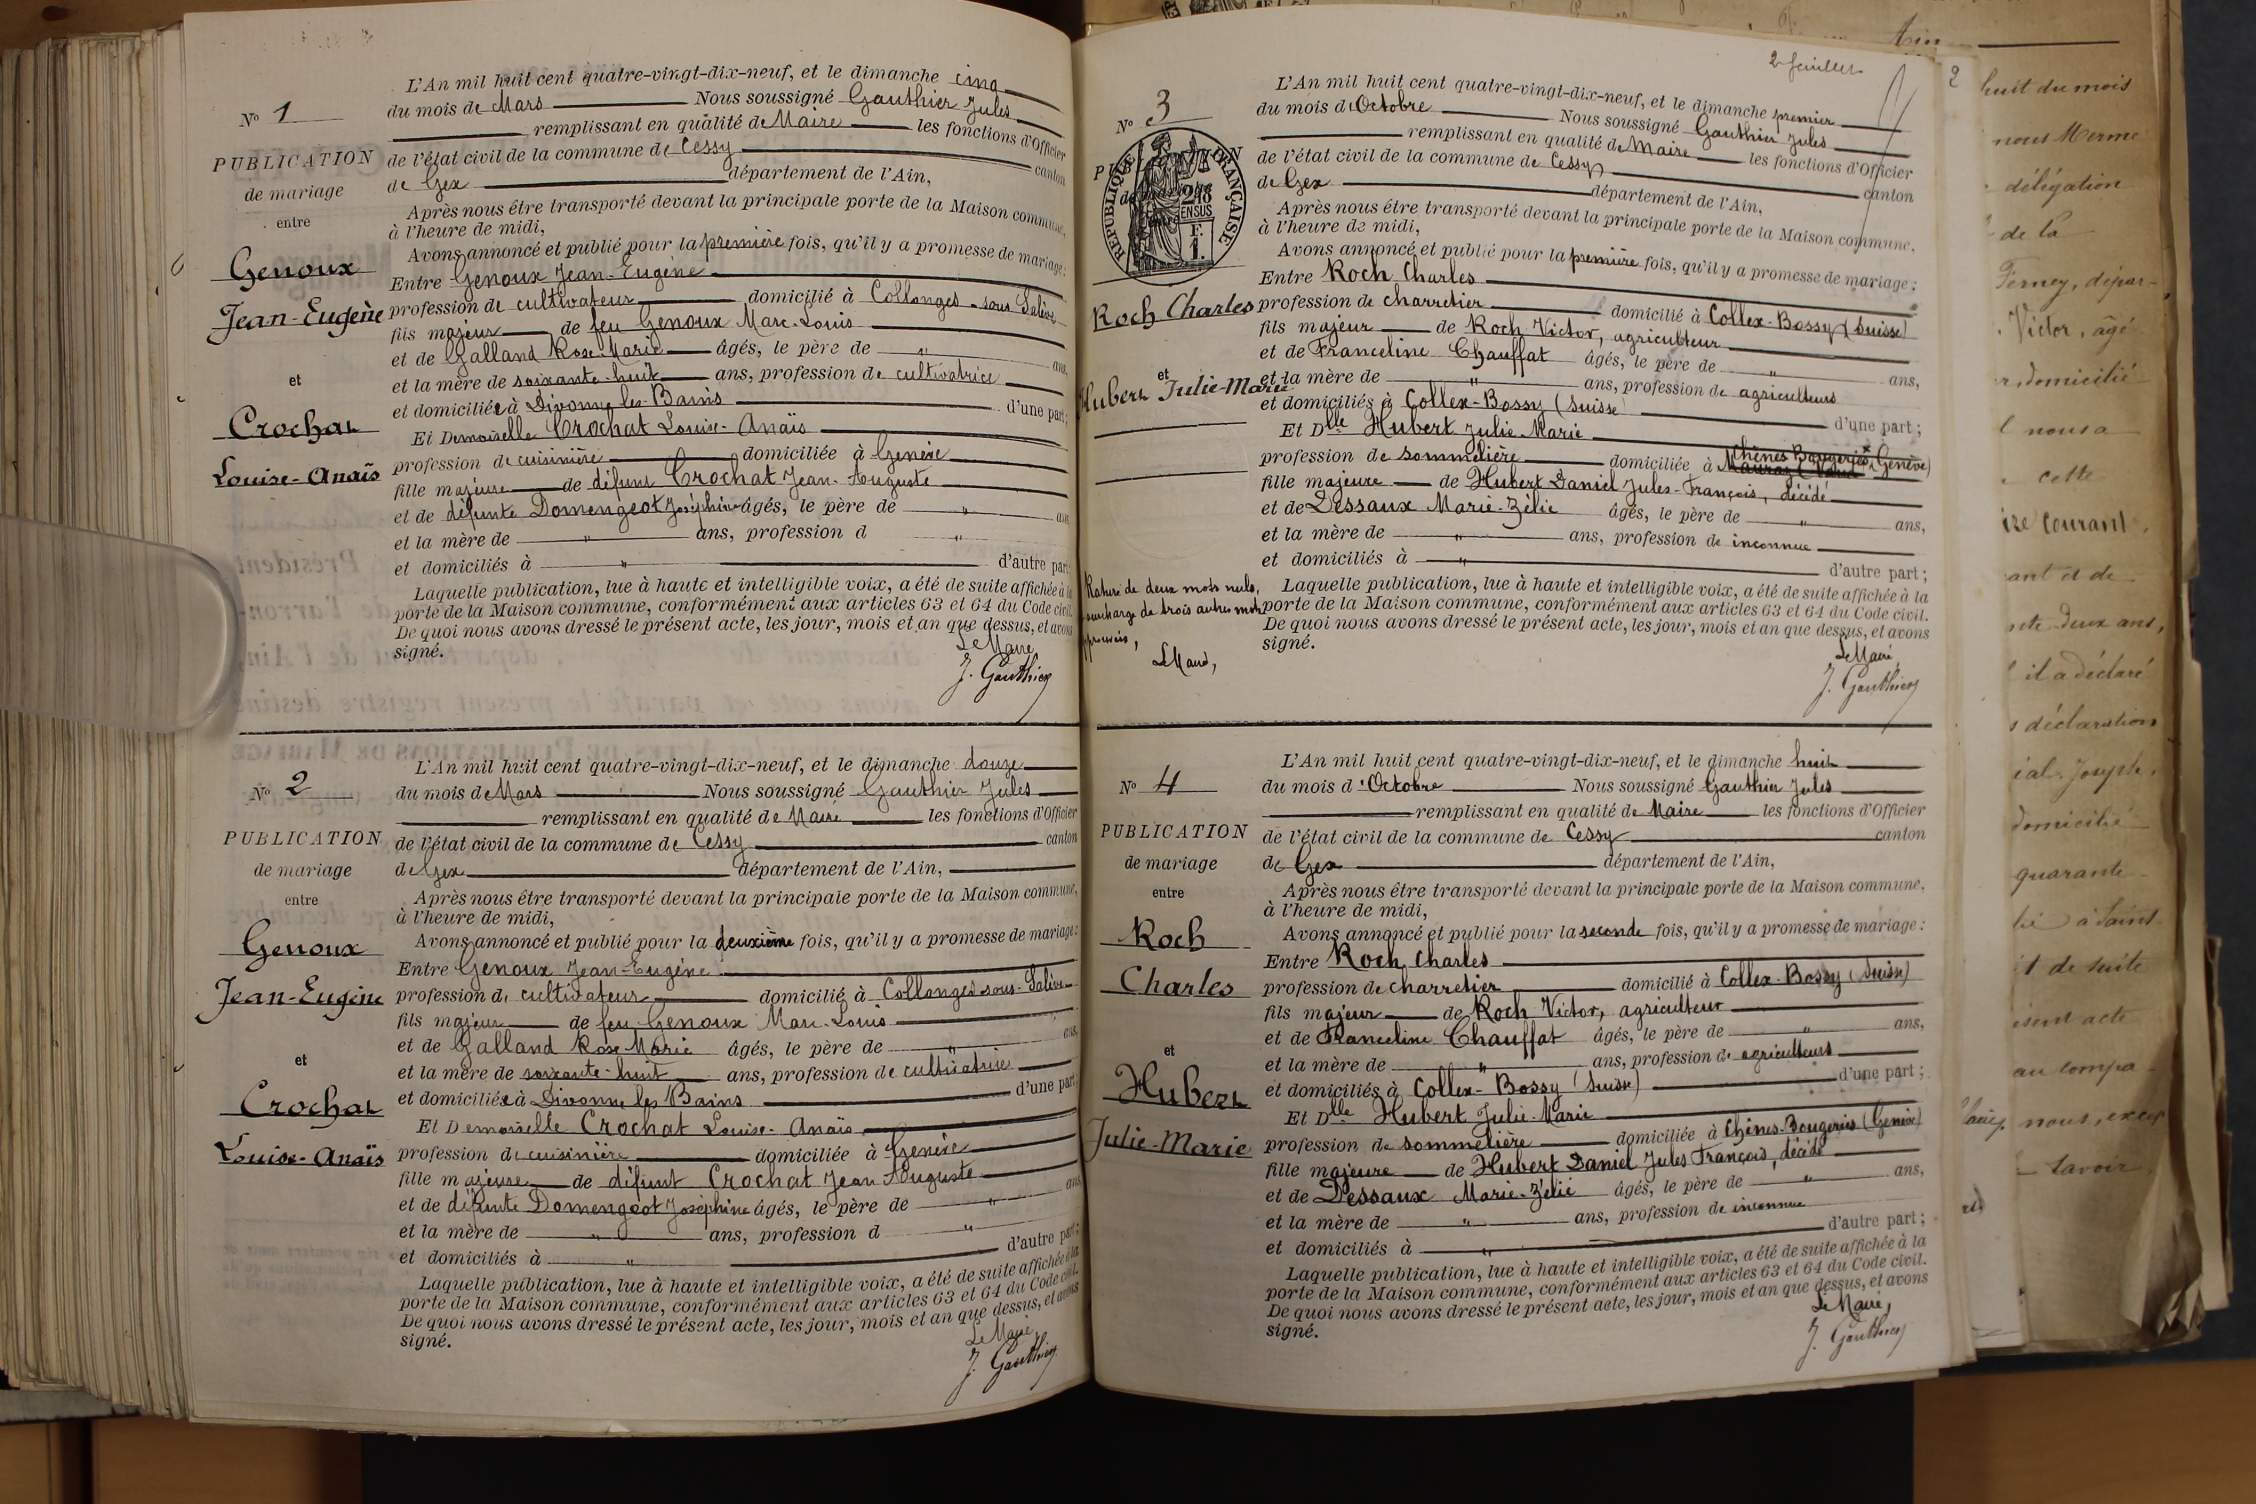 L'An mil huit cent quatre-vingt-dix-neuf, et le dimanche cinq
N° 1
du mois de Mars Nous soussigné Gauthier Jules
remplissant en qualité de Maire les fonctions d'Officier
PUBLICATION
de l'état civil de la commune de Cessy canton
de mariage
de Gex département de l'Ain,
entre
Après nous être transporté devant la principale porte de la Maison commune,
à l'heure de midi,
Avons annoncé et publié pour la première fois, qu'il y a promesse de mariage :
Genoux
Entre Genoux Jean-Eugène
Jean-Eugène
profession de cultivateur domicilié à Collonges-sous-Salève
fils majeur de feu Genoux Marc-Louis
et de Galland Rose-Marie âgés, le père de " ans,
et
et la mère de soixante-huit ans, profession de cultivatrice
et domiciliée à Divonne les Bains d'une part ;
Crochat
Et Demoiselle Crochat Louise-Anaïs
profession de cuisinière domiciliée à Genève
Louise-Anaïs
fille majeure de défunt Crochat Jean-Auguste
et de défunte Domengeot Joséphine âgés, le père de " ans
et la mère de " ans, profession d "
et domiciliés à " d'autre part
Laquelle publication, lue à haute et intelligible voix, a été de suite affichée à la
porte de la Maison commune, conformément aux articles 63 et 64 du Code civil.
De quoi nous avons dressé le présent acte, les jour, mois et an que dessus, et avons
signé.
Le Maire
J. Gauthier
L'An mil huit cent quatre-vingt-dix-neuf, et le dimanche douze
N° 2
du mois de Mars Nous soussigné Gauthier Jules
remplissant en qualité de Maire les fonctions d'Officier
PUBLICATION
de l'état civil de la commune de Cessy canton
de mariage
de Gex département de l'Ain,
entre
Après nous être transporté devant la principale porte de la Maison commune,
à l'heure de midi,
Avons annoncé et publié pour la deuxième fois, qu'il y a promesse de mariage :
Genoux
Entre Genoux Jean-Eugène
Jean-Eugène
profession de cultivateur domicilié à Collonges-sous-Salève
fils majeur de feu Genoux Marc-Louis
et de Galland Rose Marie âgés, le père de " ans,
et
et la mère de soixante-huit ans, profession de cultivatrice
et domiciliée à Divonne les Bains d'une part ;
Crochat
Et Demoiselle Crochat Louise-Anaïs
Louise-Anaïs
profession de cuisinière domiciliée à Genève
fille majeure de défunt Crochat Jean Auguste
et de défunte Domengeot Joséphine âgés, le père de " ans
et la mère de " ans, profession d "
et domiciliés à " d'autre part ;
Laquelle publication, lue à haute et intelligible voix, a été de suite affichée à la
porte de la Maison commune, conformément aux articles 63 et 64 du Code civil.
De quoi nous avons dressé le présent acte, les jour, mois et an que dessus, et avons
signé.
Le Maire
J. Gauthier
2e feuillet
L'An mil huit cent quatre-vingt-dix-neuf, et le dimanche premier
N° 3
du mois d'Octobre Nous soussigné Gauthier Jules
remplissant en qualité de Maire les fonctions d'Officier
de l'état civil de la commune de Cessy canton
RÉPUBLIQUE FRANÇAISE
de Gex département de l'Ain,
Après nous être transporté devant la principale porte de la Maison commune.
à l'heure de midi,
Avons annoncé et publié pour la première fois, qu'il y a promesse de mariage :
Entre Roch Charles
Roch Charles
profession de charretier domicilié à Collex-Bossy (Suisse)
fils majeur de Roch Victor, agriculteur
et de Franceline Chauffat âgés, le père de " ans,
et
et la mère de " ans, profession de agriculteurs
Hubert Julie-Marie
et domiciliés à Collex-Bossy (Suisse) d'une part ;
Et Dlle Hubert Julie-Marie
profession de sommelière domiciliée à Chênes Bougeries (Genève)
fille majeure de Hubert Daniel Jules-François, décédé
et de Dessaux Marie-Zélie âgés, le père de " ans,
et la mère de " ans, profession de inconnue
et domiciliés à " d'autre part ;
Rature de deux mots nuls,
surcharge de trois autres mots
approuvés,
Le Maire,
Laquelle publication, lue à haute et intelligible voix, a été de suite affichée à la
porte de la Maison commune, conformément aux articles 63 et 64 du Code civil.
De quoi nous avons dressé le présent acte, les jour, mois et an que dessus, et avons
signé.
Le Maire,
J. Gauthier
L'An mil huit cent quatre-vingt-dix-neuf, et le dimanche huit
N° 4
du mois d'Octobre Nous soussigné Gauthier Jules
remplissant en qualité de Maire les fonctions d'Officier
PUBLICATION
de l'état civil de la commune de Cessy canton
de mariage
de Gex département de l'Ain,
entre
Après nous être transporté devant la principale porte de la Maison commune,
à l'heure de midi,
Avons annoncé et publié pour la seconde fois, qu'il y a promesse de mariage :
Roch
Entre Roch Charles
Charles
profession de charretier domicilié à Collex-Bossy (Suisse)
fils majeur de Roch Victor, agriculteur
et de Franceline Chauffat âgés, le père de " ans,
et
et la mère de " ans, profession de agriculteurs
et domiciliés à Collex-Bossy (Suisse) d'une part ;
Hubert
Et Dlle Hubert Julie-Marie
Julie-Marie
profession de sommelière domiciliée à Chênes-Bougeries (Genève)
fille majeure de Hubert Daniel Jules François, décédé
et de Dessaux Marie-Zélie âgés, le père de " ans,
et la mère de " ans, profession de inconnue
et domiciliés à " d'autre part ;
Laquelle publication, lue à haute et intelligible voix, a été de suite affichée à la
porte de la Maison commune, conformément aux articles 63 et 64 du Code civil.
De quoi nous avons dressé le présent acte, les jour, mois et an que dessus, et avons
signé.
Le Maire,
J. Gauthier
2
Ain
huit du mois
nous Merme
délégation
de la
Ferney, dépar-
Victor, âgé
domicilié
nous a
cette
courant,
ant et de
deux ans,
il a déclaré
déclaration
Joseph,
domicilié
quarante
à Saint
et de suite
acte
au compa-
nous, excep
savoir